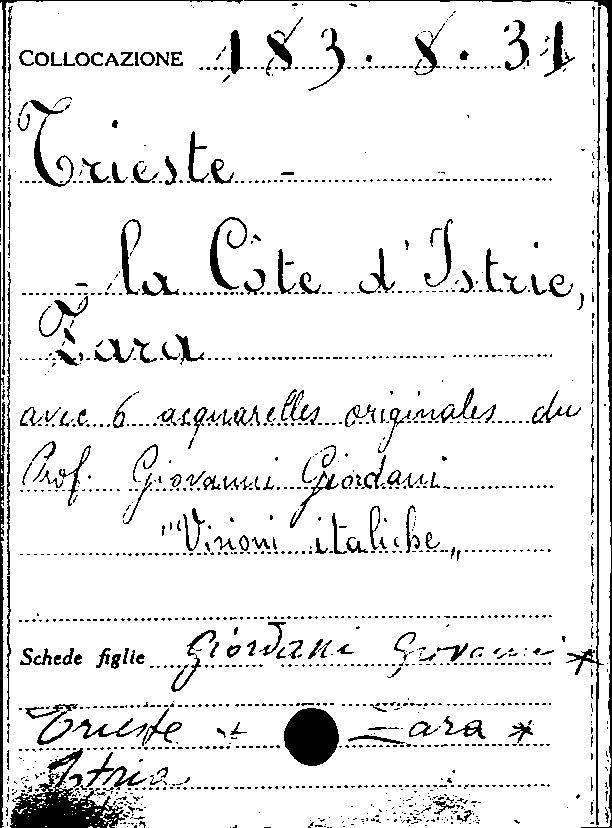 COLLOCAZIONE 183. 8. 31
Trieste -
- la Côte d'Istrie,
Zara
avec 6 acquarelles originales du
Prof. Giovanni Giordani
"Visioni italiche„
Schede figlie Giordani Giovanni *
Trieste * Zara *
Istria